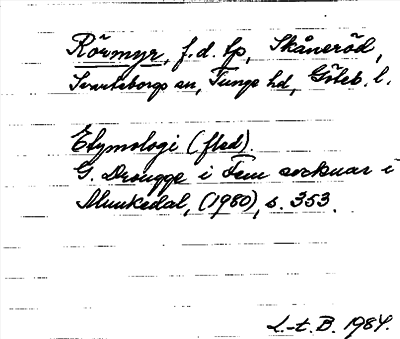 Rörmyr, f.d. lp, Skåneröd,
Svarteborgs sn, Tunge hd, Göteb. l.
Etymologi (fled).
G. Drougge i Fem socknar i
Munkedal, (1980), s. 353.
L.-t. B. 1984.